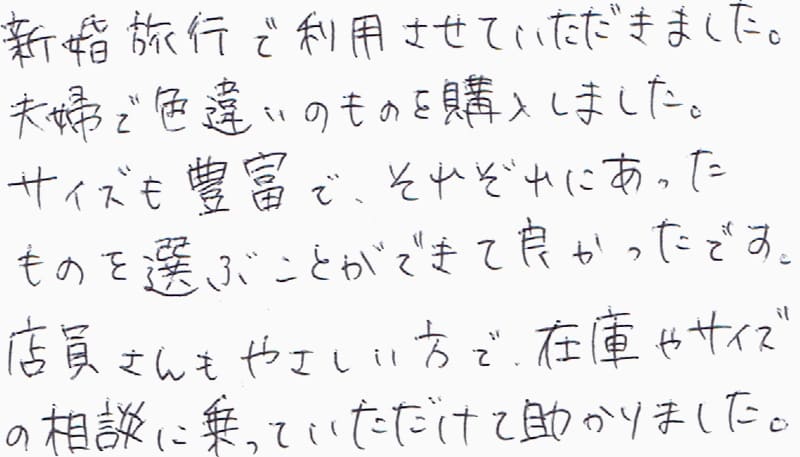 新婚旅行で利用させていただきました。
夫婦で色違いのものを購入しました。
サイズも豊富で、それぞれにあった
ものを選ぶことができて良かったです。
店員さんもやさしい方で、在庫やサイズ
の相談に乗っていただけて助かりました。